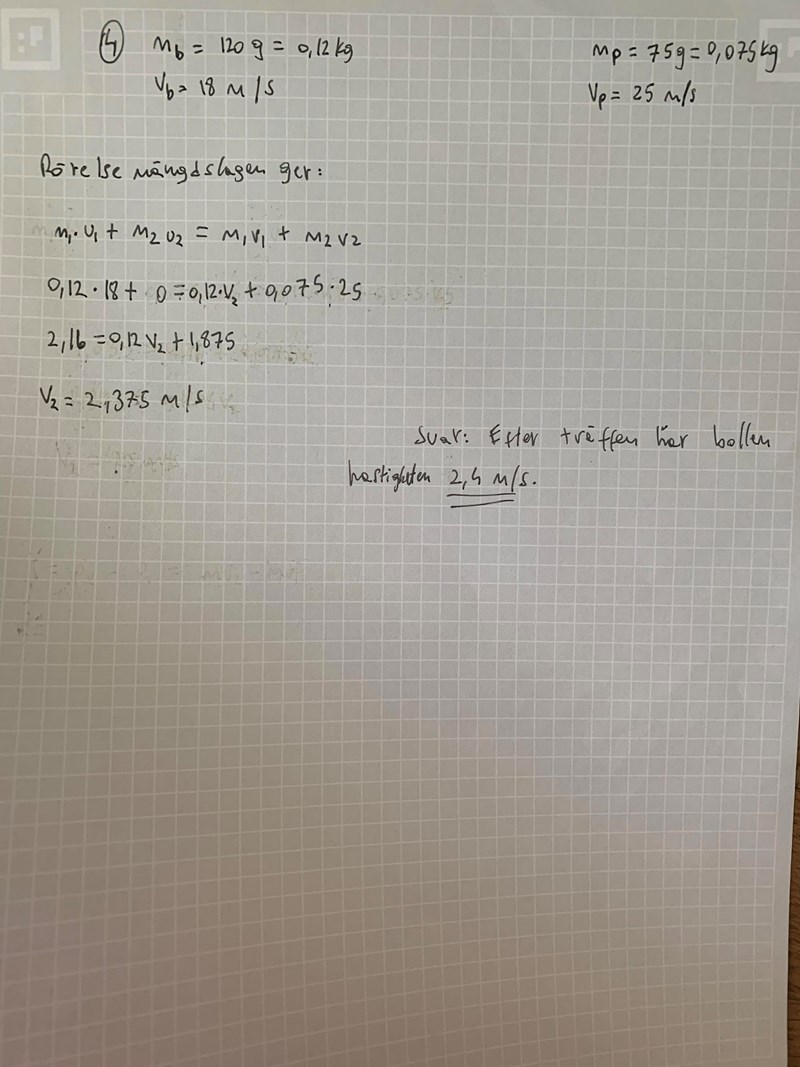 4 mb = 120 g = 0,12 kg
mp = 75 g = 0,075 kg
Vb = 18 m/s
Vp = 25 m/s
Rörelse mängdslagen ger:
m₁·u₁ + m₂u₂ = m₁v₁ + m₂v2
0,12·18 + 0 = 0,12·V₂ + 0,075·25
2,16 = 0,12 V₂ + 1,875
V₂ = 2,375 m/s
Svar: Efter träffen har bollen
hastigheten 2,4 m/s.